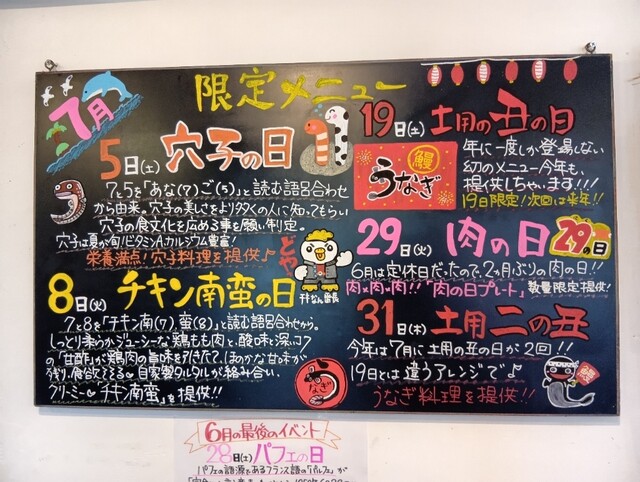 7月
限定メニュー
5日(土) 穴子の日
7と5を「あな(7)ご(5)」と読む語呂合わせ
から由来。穴子の美しさをより多くの人に知ってもらい
穴子の食文化を広める事を願い制定。
穴子は夏が旬!ビタミンA、カルシウム豊富!
栄養満点!穴子料理を提供♪
8日(火) チキン南蛮の日
7と8を「チキン南(7)、蛮(8)」と読む語呂合わせから。
しっとり柔らかジューシーな鶏もも肉と、酸味と深いコク
の「甘酢」が鶏肉の旨味を引きたて、ほのかな甘味が
残り、食欲そそる 自家製タルタルが絡み合い、
クリーミー♡「チキン南蛮」を提供!!
うなぎ
19日(土) 土用の丑の日
鰻
うなぎ
年に一度しか登場しない
幻のメニュー今年も
提供しちゃいます!!!
19日限定!次回は来年!!
29日(火) 肉の日
29の日
6月は定休日だったので、2ヶ月ぶりの肉の日!!
肉×肉×肉!!「肉の日プレート」数量限定提供!
31日(木) 土用二の丑
今年は7月に土用の丑の日が2回!!
19日とは違うアレンジで♪
うなぎ料理を提供!!
鰻
6月の最後のイベント
28日(土) パフェの日
パフェの語源であるフランス語の「パルフェ」が